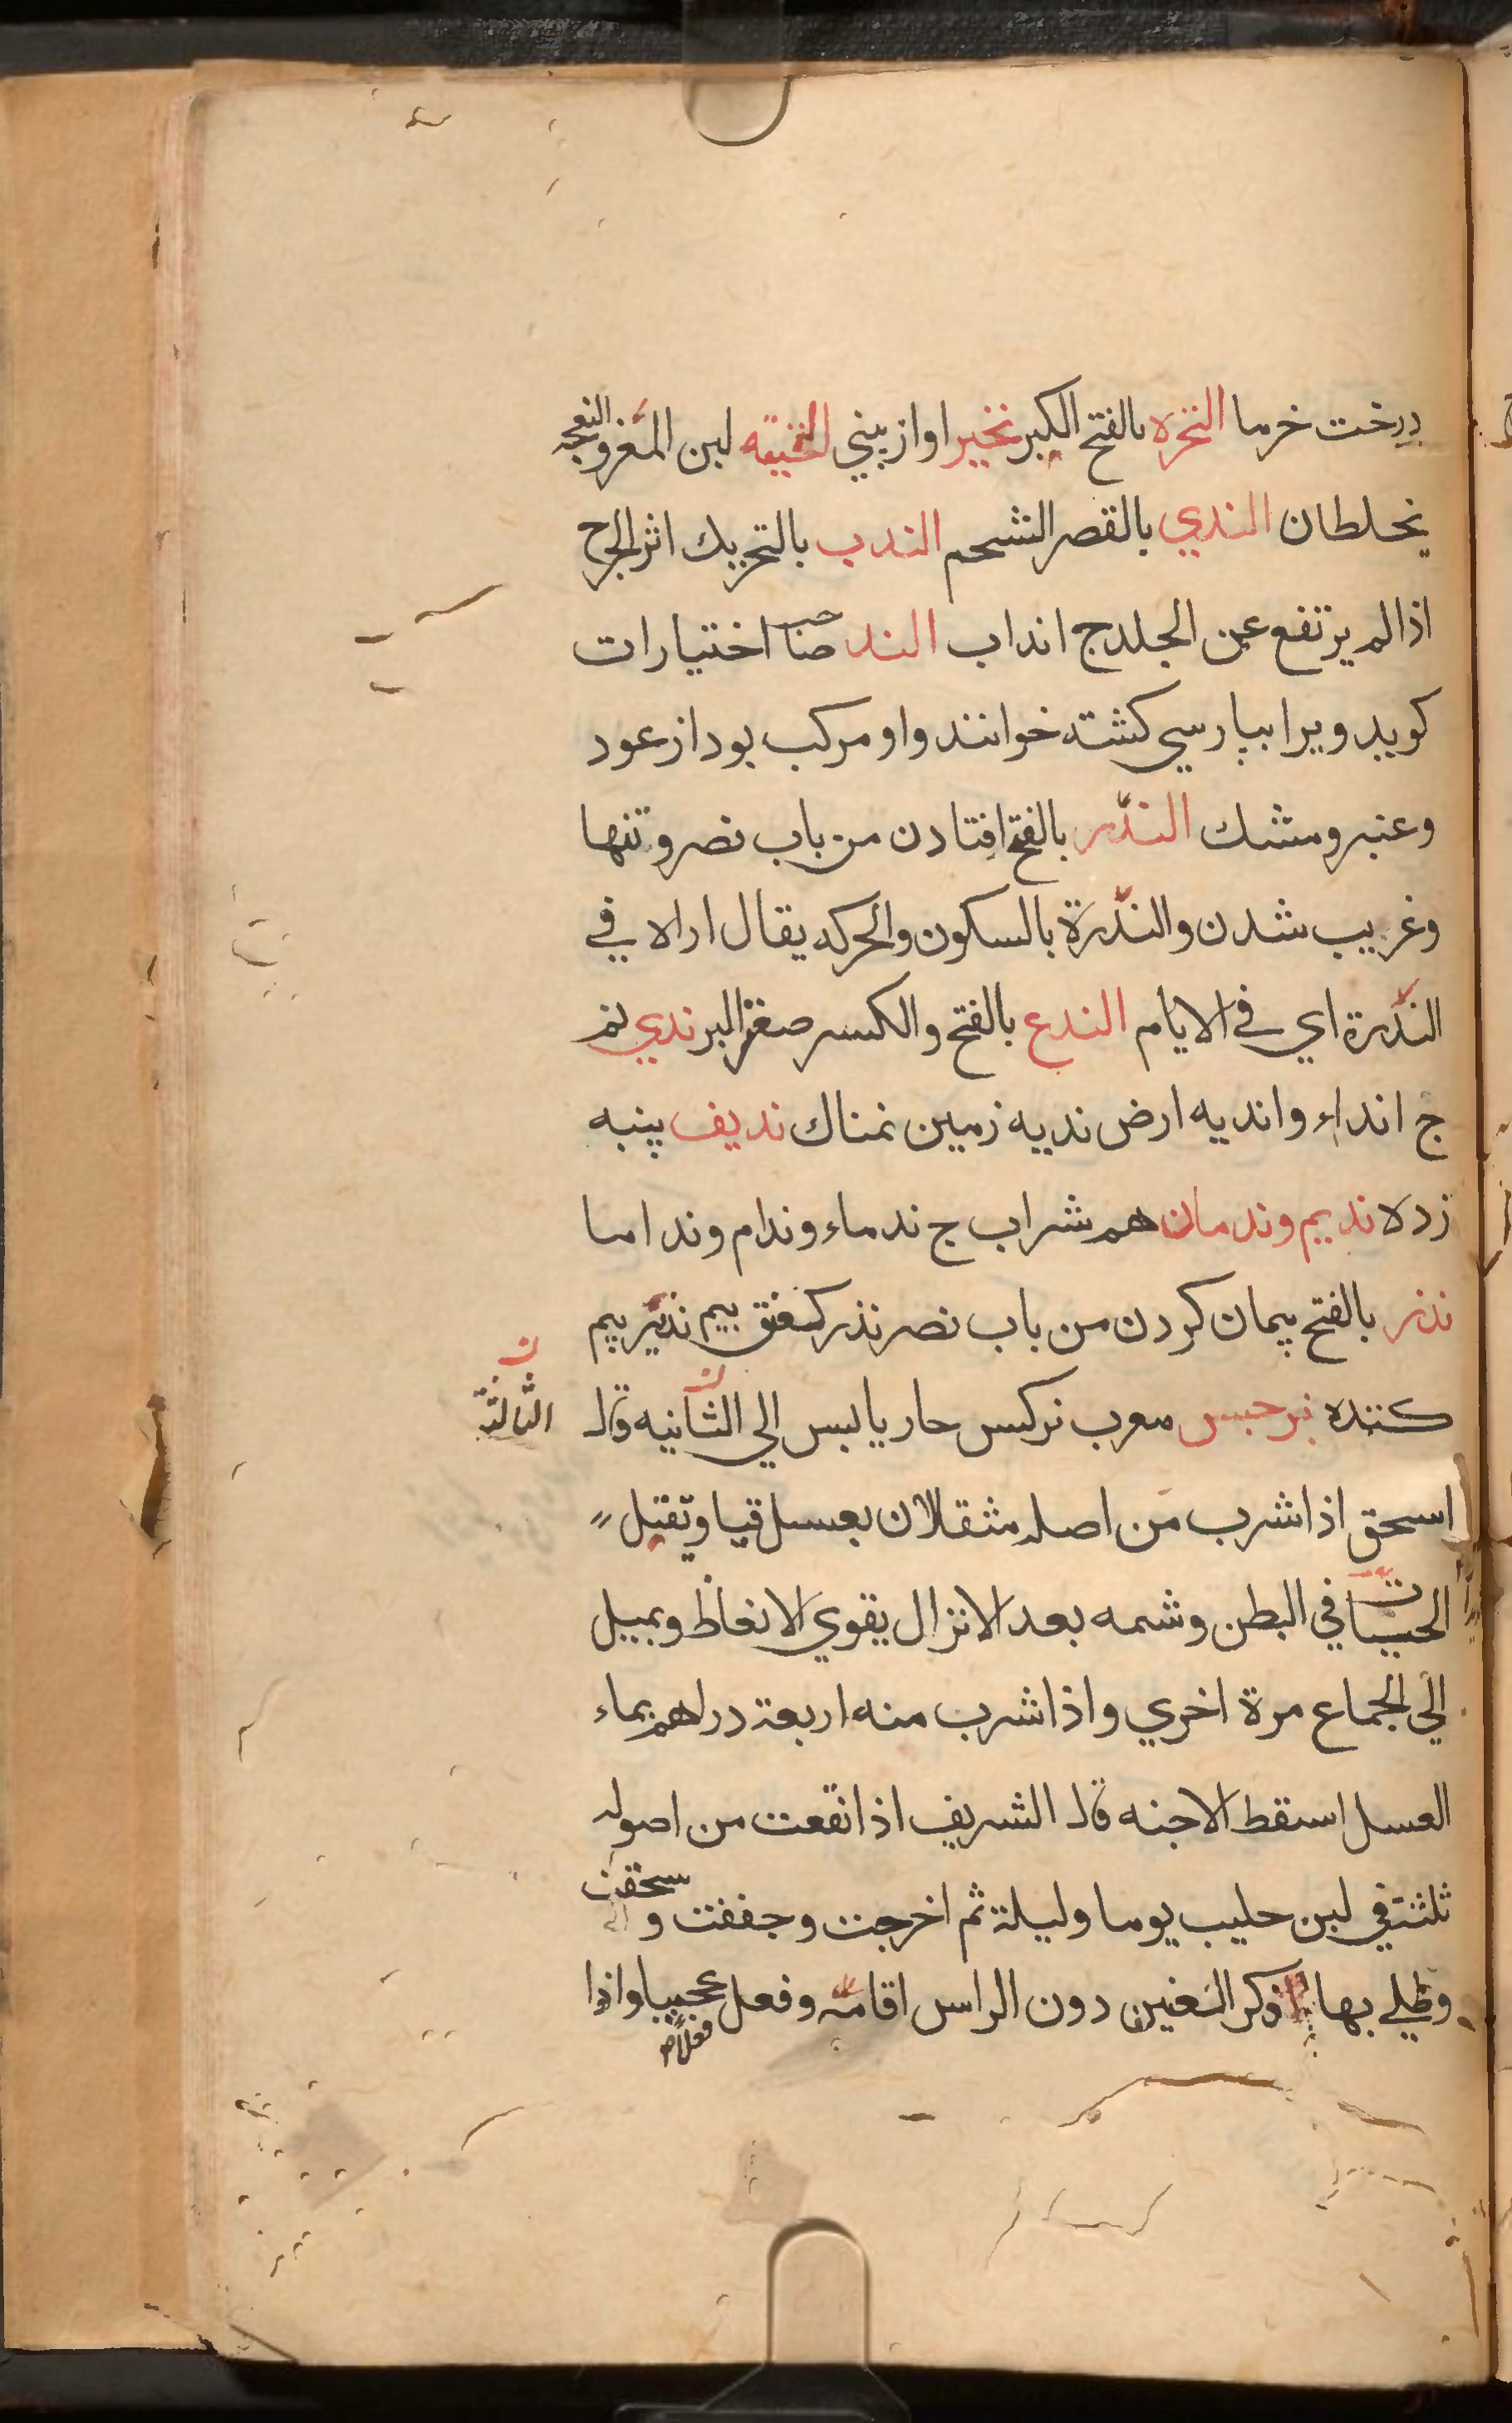 درخت خرما النخره بالفتح الكبر نخير اواز بيني النخيته لبن المغز و النعجه
يخلطان الندي بالقصر الشحم الندب بالتحريك اثر الجرح
اذا لم يرتفع عن الجلد ج انداب الند صنا حب اختيارات
كويد ويرا بپارسي كشته خوانند واو مركب بود از عود
وعنبر ومشك الندر بالفتح افتادن من باب نصر وتنها
وغريب شدن والندرة بالسكون والحركه يقال اراه في
الندرة اي في الايام الندع بالفتح والكسر صغتر البر ندي نم
ج انداء وانديه ارض نديه زمين نمناك نديف پنبه
زده نديم وندمان هم شراب ج ندماء وندام ونداما
نذر بالفتح پيمان كردن من باب نصر نذر كعنق بيم نذير بيم
كننده نرجس معرب نركس حار يابس الي الثانيه قال الثالثة
اسحق اذا شرب من اصله مثقالان بعسل قيا ويقتل
الحيات في البطن وشمه بعد الانزال يقوي الانعاظ ويميل
الي الجماع مرة اخري واذا شرب منه اربعة دراهم بماء
العسل اسقط الاجنه قال الشريف اذا نقعت من اصوله
ثلثة في لبن حليب يوما وليلة ثم اخرجت وجففت و سحقت
وطلي بها ذكر العنين دون الراس اقامه وفعل عجيبا واذا
فعلا